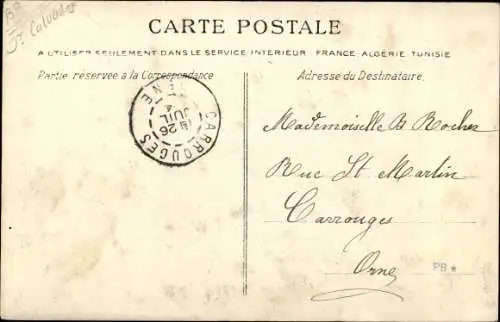 St Calvados
CARTE POSTALE
A UTILISER SEULEMENT DANS LE SERVICE INTERIEUR FRANCE, ALGERIE TUNISIE
Partie réservée à la Correspondance
Adresse du Destinataire.
CARROUGES
26
JUIL
Mademoiselle B Rocher
Rue St. Martin
Carrouges
Orne
PB *